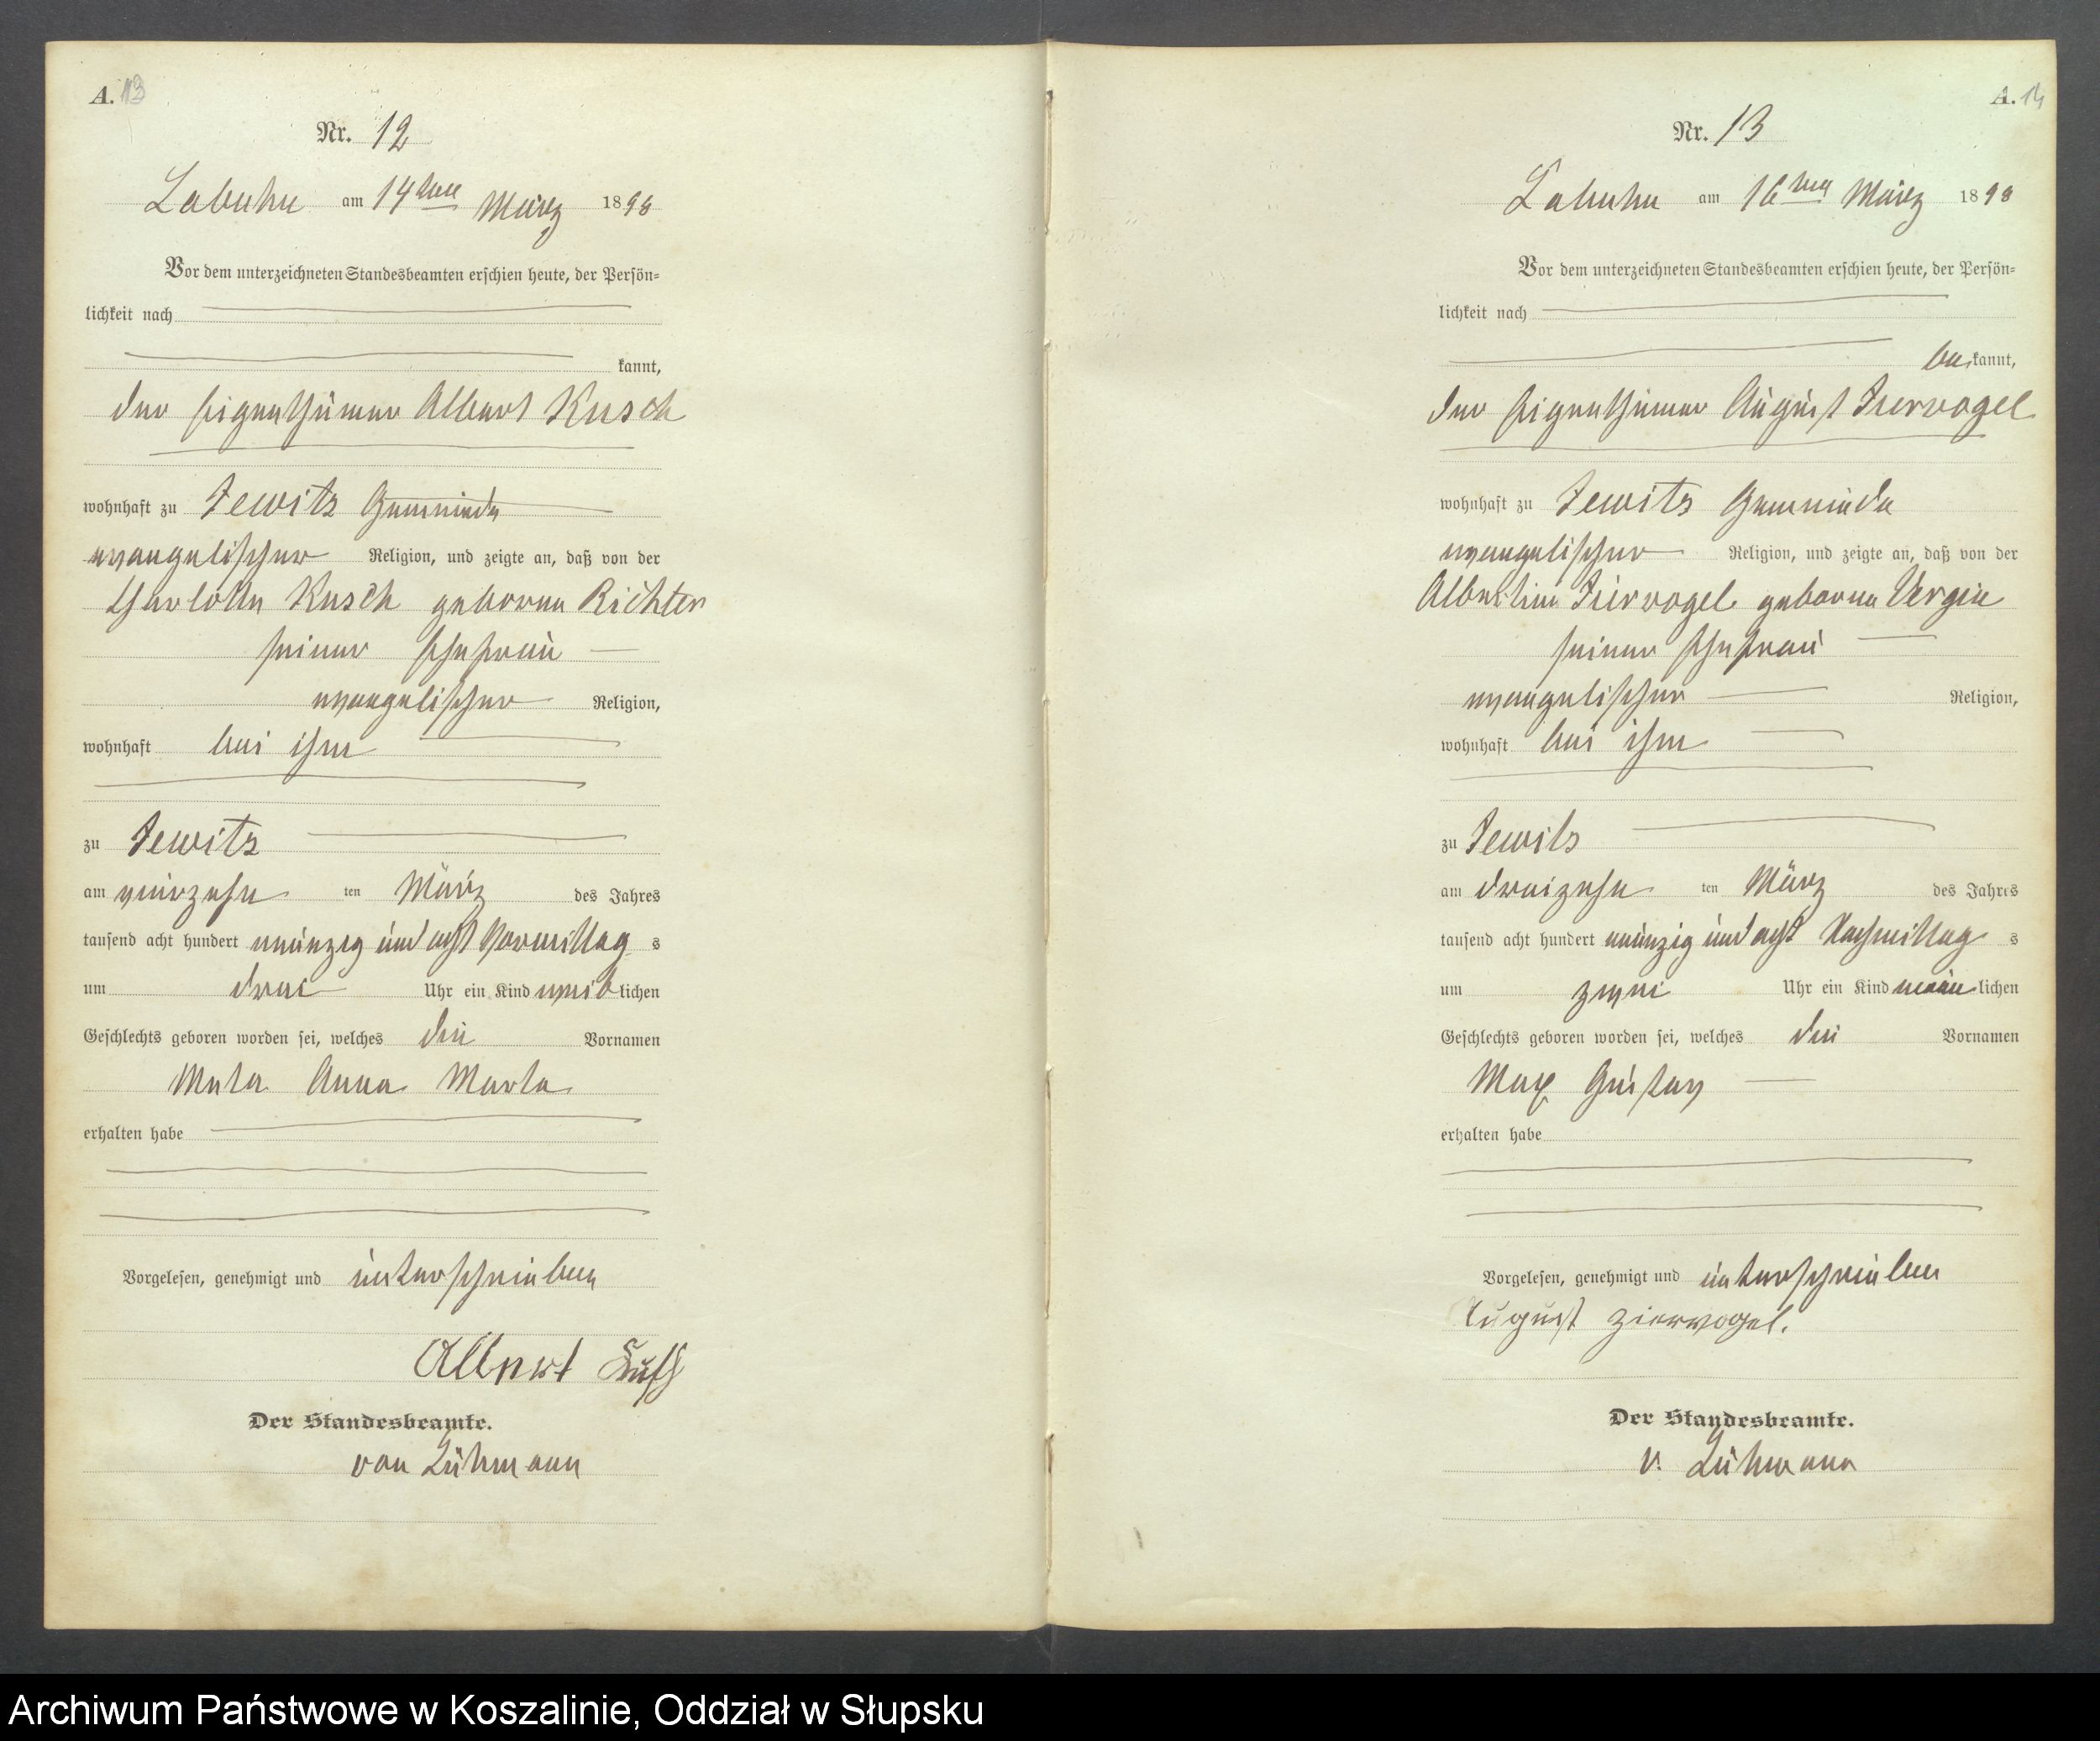 A. 13
Nr. 12
Labuhn am 14ten März 1898
Vor dem unterzeichneten Standesbeamten erschien heute, der Persön-
lichkeit nach
kannt,
der Eigenthümer Albert Kusch
wohnhaft zu Jewitz Gemeinde
evangelischer Religion, und zeigte an, daß von der
Charlotte Kusch geborne Richter
seiner Ehefrau
evangelischer Religion,
wohnhaft bei ihm
zu Jewitz
am vierzehn ten März des Jahres
tausend acht hundert neunzig und acht Vormittag s
um drei Uhr ein Kind weiblichen
Geschlechts geboren worden sei, welches die Vornamen
Meta Anna Marta
erhalten habe
Vorgelesen, genehmigt und unterschrieben
Albert Kusch
Der Standesbeamte.
von Lühmann
A. 14
Nr. 13
Labuhn am 16ten März 1898
Vor dem unterzeichneten Standesbeamten erschien heute, der Persön-
lichkeit nach
bekannt,
der Eigenthümer August Ziervogel
wohnhaft zu Jewitz Gemeinde
evangelischer Religion, und zeigte an, daß von der
Albertine Ziervogel geborne Vergin
seiner Ehefrau
evangelischer Religion,
wohnhaft bei ihm
zu Jewitz
am dreizehn ten März des Jahres
tausend acht hundert neunzig und acht Nachmittag s
um zwei Uhr ein Kind männlichen
Geschlechts geboren worden sei, welches die Vornamen
Max Gustav
erhalten habe
Vorgelesen, genehmigt und unterschrieben
August Ziervogel.
Der Standesbeamte.
v. Lühmann
Archiwum Państwowe w Koszalinie, Oddział w Słupsku